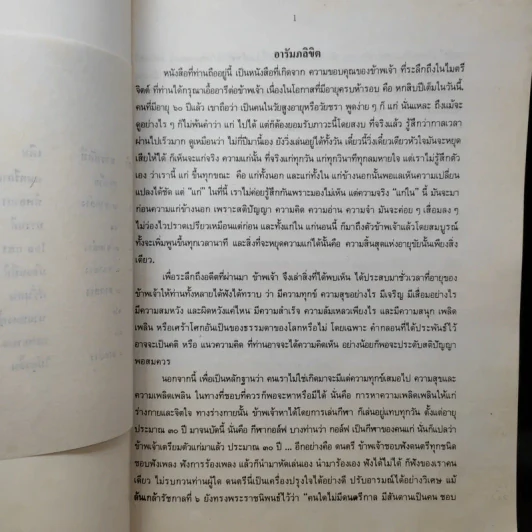 1
อารัมภลิขิต
หนังสือที่ท่านถืออยู่นี้ เป็นหนังสือที่เกิดจาก ความขอบคุณของข้าพเจ้า ที่ระลึกถึงในไมตรี
จิตต์ ที่ท่านได้กรุณาเอื้ออารีต่อข้าพเจ้า เนื่องในโอกาสที่มีอายุครบห้ารอบ คือ หกสิบปีเต็มในวันนี้.
คนที่มีอายุ ๖๐ ปีแล้ว เขาถือว่า เป็นคนในวัยสูงอายุหรือวัยชรา พูดง่าย ๆ ก็ แก่ นั่นแหละ ถึงแม้จะ
ดูอย่างไร ๆ ก็ไม่พ้นคำว่า แก่ ไป ได้ แต่ก็ต้องยอมรับภาวะนี้โดยสงบ ที่จริงแล้ว รู้สึกว่ากาลเวลา
ผ่านไปเร็วมาก ดูเหมือนว่า ไม่กี่ปีมานี้เอง ยังวิ่งเล่นอยู่ได้ทั้งวัน เดี๋ยวนี้วิ่งเดี๋ยวเดียวหัวใจมันจะหยุด
เสียให้ได้ ก็เห็นจะแก่จริง ความแก่นั้น ที่จริงแก่ทุกวัน แก่ทุกวินาทีทุกลมหายใจ แต่เราไม่รู้สึกตัว
เอง ว่าเรานี้ แก่ ขึ้นทุกขณะ คือ แก่ทั้งนอก และแก่ทั้งใน แก่ข้างนอกนั้นพอแลเห็นความเปลี่ยน
แปลงได้ชัด แต่ "แก่" ในที่นี้ เราไม่ค่อยรู้สึกกันเพราะมองไม่เห็น แต่ความจริง "แก่ใน" นี้ มันจะมา
ก่อนความแก่ข้างนอก เพราะสติปัญญา ความคิด ความอ่าน ความจำ มันจะค่อย ๆ เสื่อมลง ๆ
ไม่ว่องไวปราดเปรียวเหมือนแต่ก่อน และทั้งแก่ใน แก่นอนนี้ ก็มาถึงตัวข้าพเจ้าแล้วโดยสมบูรณ์
ทั้งจะเพิ่มพูนขึ้นทุกเวลานาที และสิ่งที่จะหยุดความแก่ได้นั้นคือ ความสิ้นสุดแห่งอายุขัยนั้นเพียงสิ่ง
เดียว.
เพื่อระลึกถึงอดีตที่ผ่านมา ข้าพเจ้า จึงเล่าสิ่งที่ได้พบเห็น ได้ประสบมาชั่วเวลาที่อายุของ
ข้าพเจ้าให้ท่านทั้งหลายได้ฟังได้ทราบ ว่า มีความทุกข์ ความสุขอย่างไร มีเจริญ มีเสื่อมอย่างไร
มีความสมหวัง และผิดหวังแค่ไหน มีความสำเร็จ ความล้มเหลวเพียงไร และมีความสนุก เพลิด
เพลิน หรือเศร้าโศกอันเป็นของธรรมดาของโลกหรือไม่ โดยเฉพาะ คำกลอนที่ได้ประพันธ์ไว้
อาจจะเป็นคติ หรือ แนวความคิด ที่ท่านอาจจะได้ความคิดเห็น อย่างน้อยก็พอจะประดับสติปัญญา
พอสมควร
นอกจากนี้ เพื่อเป็นหลักฐานว่า คนเราไม่ใช่เกิดมาจะมีแต่ความทุกข์เสมอไป ความสุขและ
ความเพลิดเพลิน ในทางที่ชอบที่ควรก็พอจะหาหรือมีได้ นั่นคือ การหาความเพลิดเพลินให้แก่
ร่างกายและจิตใจ ทางร่างกายนั้น ข้าพเจ้าหาได้โดยการเล่นกีฬา ก็เล่นอยู่แทบทุกวัน ตั้งแต่อายุ
ประมาณ ๓๐ ปี มาจนบัดนี้ นั่นคือ กีฬากอล์ฟ บางท่านว่า กอล์ฟ เป็นกีฬาของคนแก่ นั่นก็แปลว่า
ข้าพเจ้าเตรียมตัวแก่มาแล้ว ประมาณ ๓๐ ปี ... อีกอย่างคือ ดนตรี ข้าพเจ้าชอบฟังดนตรีทุกชนิด
ชอบฟังเพลง ฟังการร้องเพลง แล้วก็นำมาหัดเล่นเอง นำมาร้องเอง ฟังได้ไม่ได้ ก็ฟังของเราคน
เดียว ไม่รบกวนท่านผู้ใด ดนตรีนี้เป็นเครื่องปรุงใจได้อย่างดี ปรับอารมณ์ได้อย่างวิเศษ แม้
ล้นเกล้ารัชกาลที่ ๖ ยังทรงพระราชนิพนธ์ไว้ว่า "คนใดไม่มีดนตรีกาล มีสันดานเป็นคน ชอบ